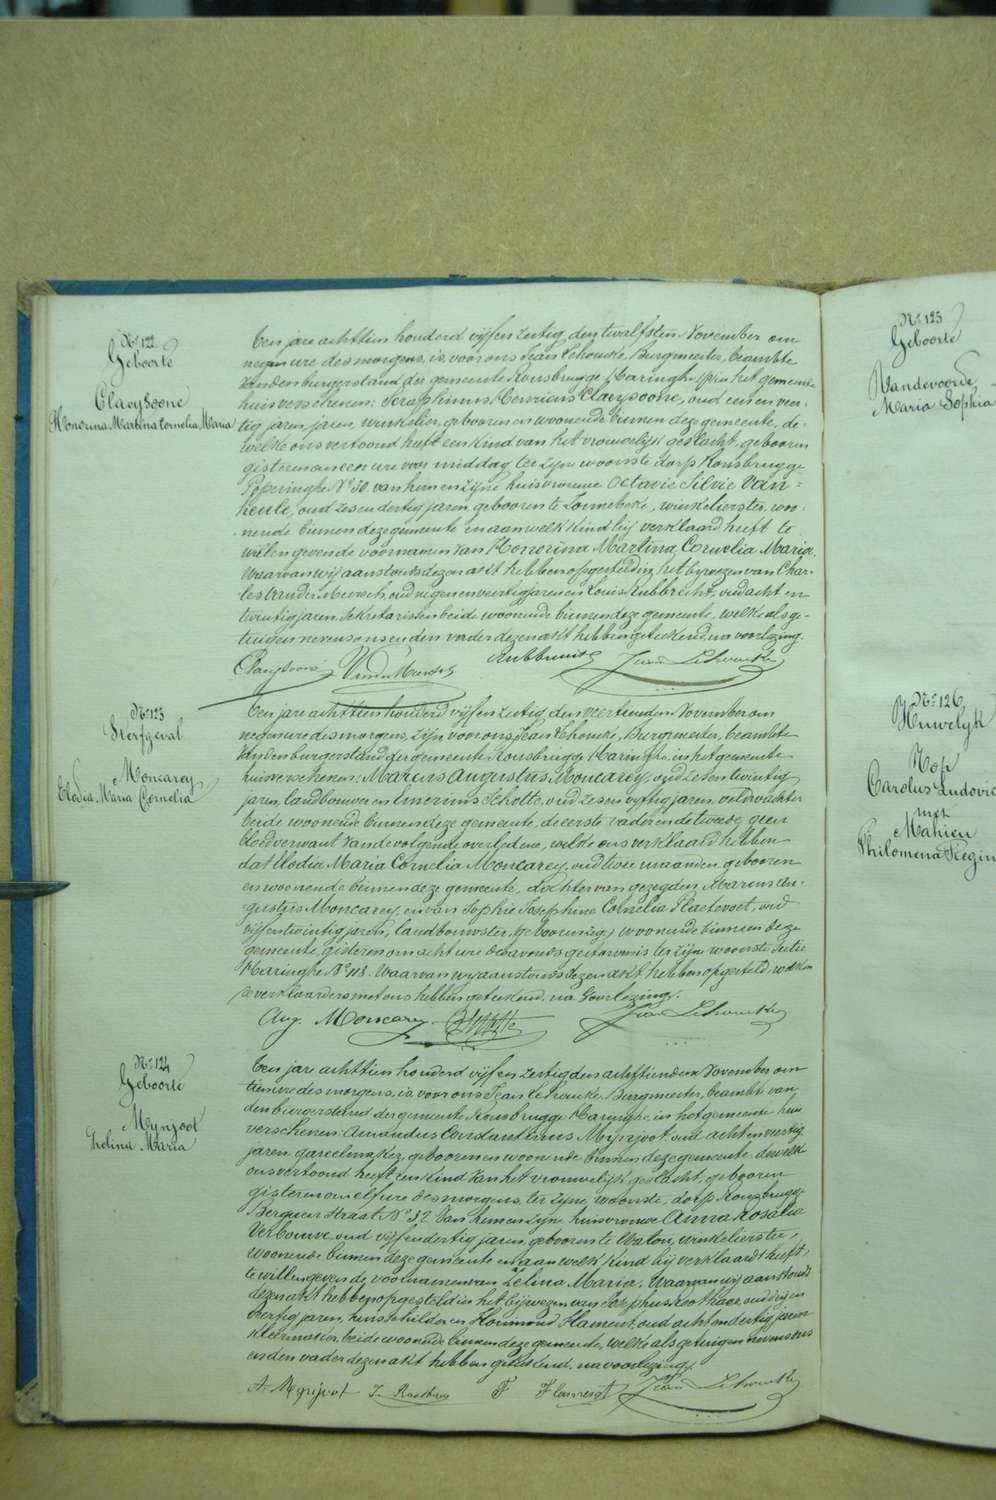 N.º 122
Geboorte
Claeysoone
Honorina Martina Cornelia Maria
Een jare achttien honderd vijf en zestig, den twalfsten November om
negen ure des morgens, is voor ons Jean Lehoucke, Burgmeester, beambte
van den burgerstand der gemeente Rousbrugge Haringhe, in het gemeente
huis verschenen: Seraphinus Henricus Claeysoone, oud een en veer-
tig jaren, jaren, winkelier, geboren en wonende binnen deze gemeente, de-
welke ons vertoond heeft een kind van het vrouwelijk geslacht, geboren
gisteren om een ure voor middag ter zijne woonste dorp Rousbrugge
Poperinghe N.º 30. van hem en zijne huisvrouwe Octavie Silvie Van-
heule, oud zes en dertig jaren, geboren te Zonnebeke, winkelierster, wo-
nende binnen deze gemeente en aan welk kind hij verklaard heeft te
willen geven de voornamen van Honorina Martina Cornelia Maria.
Waarvan wij aanstonds dezen akt hebben opgesteld in het bijwezen van Char-
les Vander Meersch, oud negen en veertig jaren en Louis Lubbrecht, oud acht en
twintig jaren, sekretaris en beide wonende binnen deze gemeente, welke als ge-
tuigen nevens ons en den vader dezen akt hebben geteekend, na voorlezing.
Claeysoone VanderMeersch Jean Lehoucke
N.º 123
Sterfgeval
Moncarey
Elodia Maria Cornelia
Een jare achttien honderd vijf en zestig, den veertienden November om
negen ure des morgens, zijn voor ons Jean Lehoucke, Burgmeester, beambte
van den burgerstand der gemeente Rousbrugge Haringhe, in het gemeente
huis verschenen: Marcus Augustus Moncarey, oud zes en twintig
jaren, landbouwer en Emerinus Scholte, oud zes en vyftig jaren, veldwachter
beide wonende binnen deze gemeente, de eerste vader en de tweede geen
bloedverwant van de volgende overledene, welke ons verklaard hebben
dat Elodia Maria Cornelia Moncarey, oud twee maanden, geboren
en wonende binnen deze gemeente, dochter van gezegden Marcus Au-
gustus Moncarey, en van Sophie Josephine Cornelia Plaetevoet, oud
vijf en twintig jaren, landbouwster, wonende binnen deze
gemeente, gisteren om acht ure des avonds gestorven is ter zijne woonste sectie
Haringhe N.º 118. Waarvan wy aanstonds dezen akt hebben opgesteld, welken
de verklaarders met ons hebben geteekend, na voorlezing.
Aug. Moncarey Jean Lehoucke
N.º 124
Geboorte
Mynjoot
Zelina Maria
Een jare achttien honderd vijf en zestig den achttienden November om
tien ure des morgens, is voor ons Jean Lehoucke Burgmeester, beambte van
den burgerstand der gemeente Rousbrugge Haringhe, in het gemeente huis
verschenen: Amandus Constantinus Mynjoot, oud acht en veertig
jaren, gareelmaker, geboren en wonende binnen deze gemeente, dewelke
ons vertoond heeft een kind van het vrouwelyk geslacht, geboren
gisteren om elf ure des morgens, ter zijne woonste, dorp Rousbrugge
Berguen straat N.º 32. Van hem en zijne huisvrouwe Anna Rosalia
Verbouwe, oud vijf en dertig jaren, geboren te Watou, winkelierster,
wonende binnen deze gemeente en aan welk kind hij verklaard heeft,
te willen geven de voornamen van Zelina Maria. Waarvan wij aanstonds
dezen akt hebben opgesteld in het bijwezen van Josephus Roothaer, oud zes en
veertig jaren, kunstschilder en Florimond Flamend, oud acht en dertig jaren
kleermaker beide wonende binnen deze gemeente, welke als getuigen nevens ons
en den vader dezen akt hebben geteekend, na voorlezing.
A Mynjoot J. Roothaer F Flameygt Jean Lehoucke
N.º 125
Geboorte
Vandevoorde,
Maria Sophia
N.º 126
Huwelyk
Hop
Carolus Ludovic
met
Mahieu
Philomena Regin